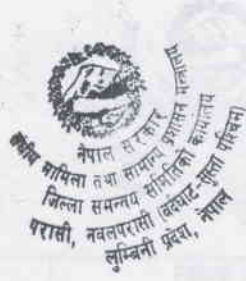 नेपाल सरकार
संघीय मामिला तथा सामान्य प्रशासन मन्त्रालय
जिल्ला समन्वय समितिको कार्यालय
परासी, नवलपरासी (बर्दघाट-सुस्ता पश्चिम)
लुम्बिनी प्रदेश, नेपाल